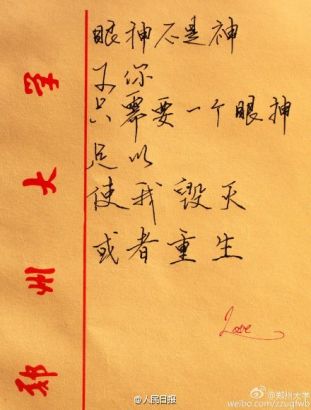 郑州大学
眼神不是神
你
只需要一个眼神
足以
使我毁灭
或者重生
Love
@人民日报
@郑州大学
weibo.com/zzugfwb